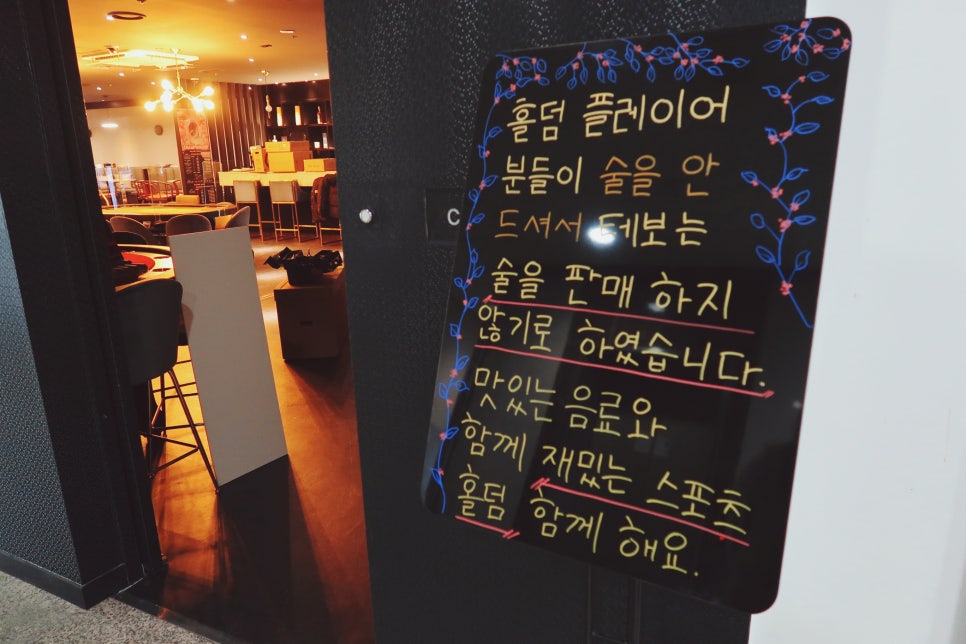 홀덤 플레이어
분들이 술을 안
드셔서 테보는
술을 판매 하지
않기로 하였습니다.
맛있는 음료와
함께 재밌는 스포츠
홀덤 함께 해요.
C